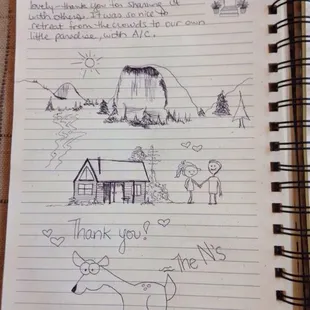 lovely - thank you for sharing it
with others. It was so nice to
retreat from the crowds to our own
little paradise, with A/C.
Thank you!
The N's